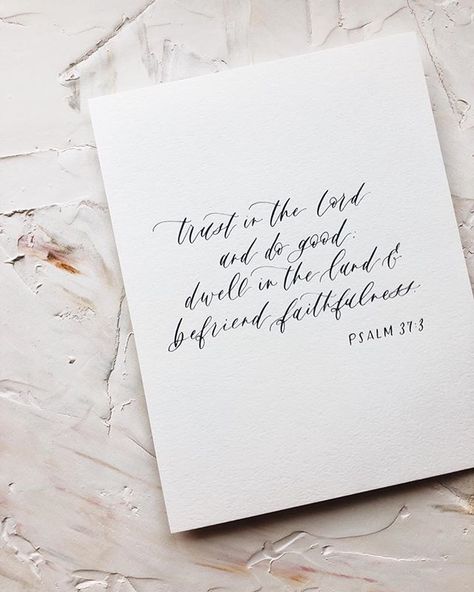 trust in the lord
and do good;
dwell in the land &
befriend faithfulness.
PSALM 37:3